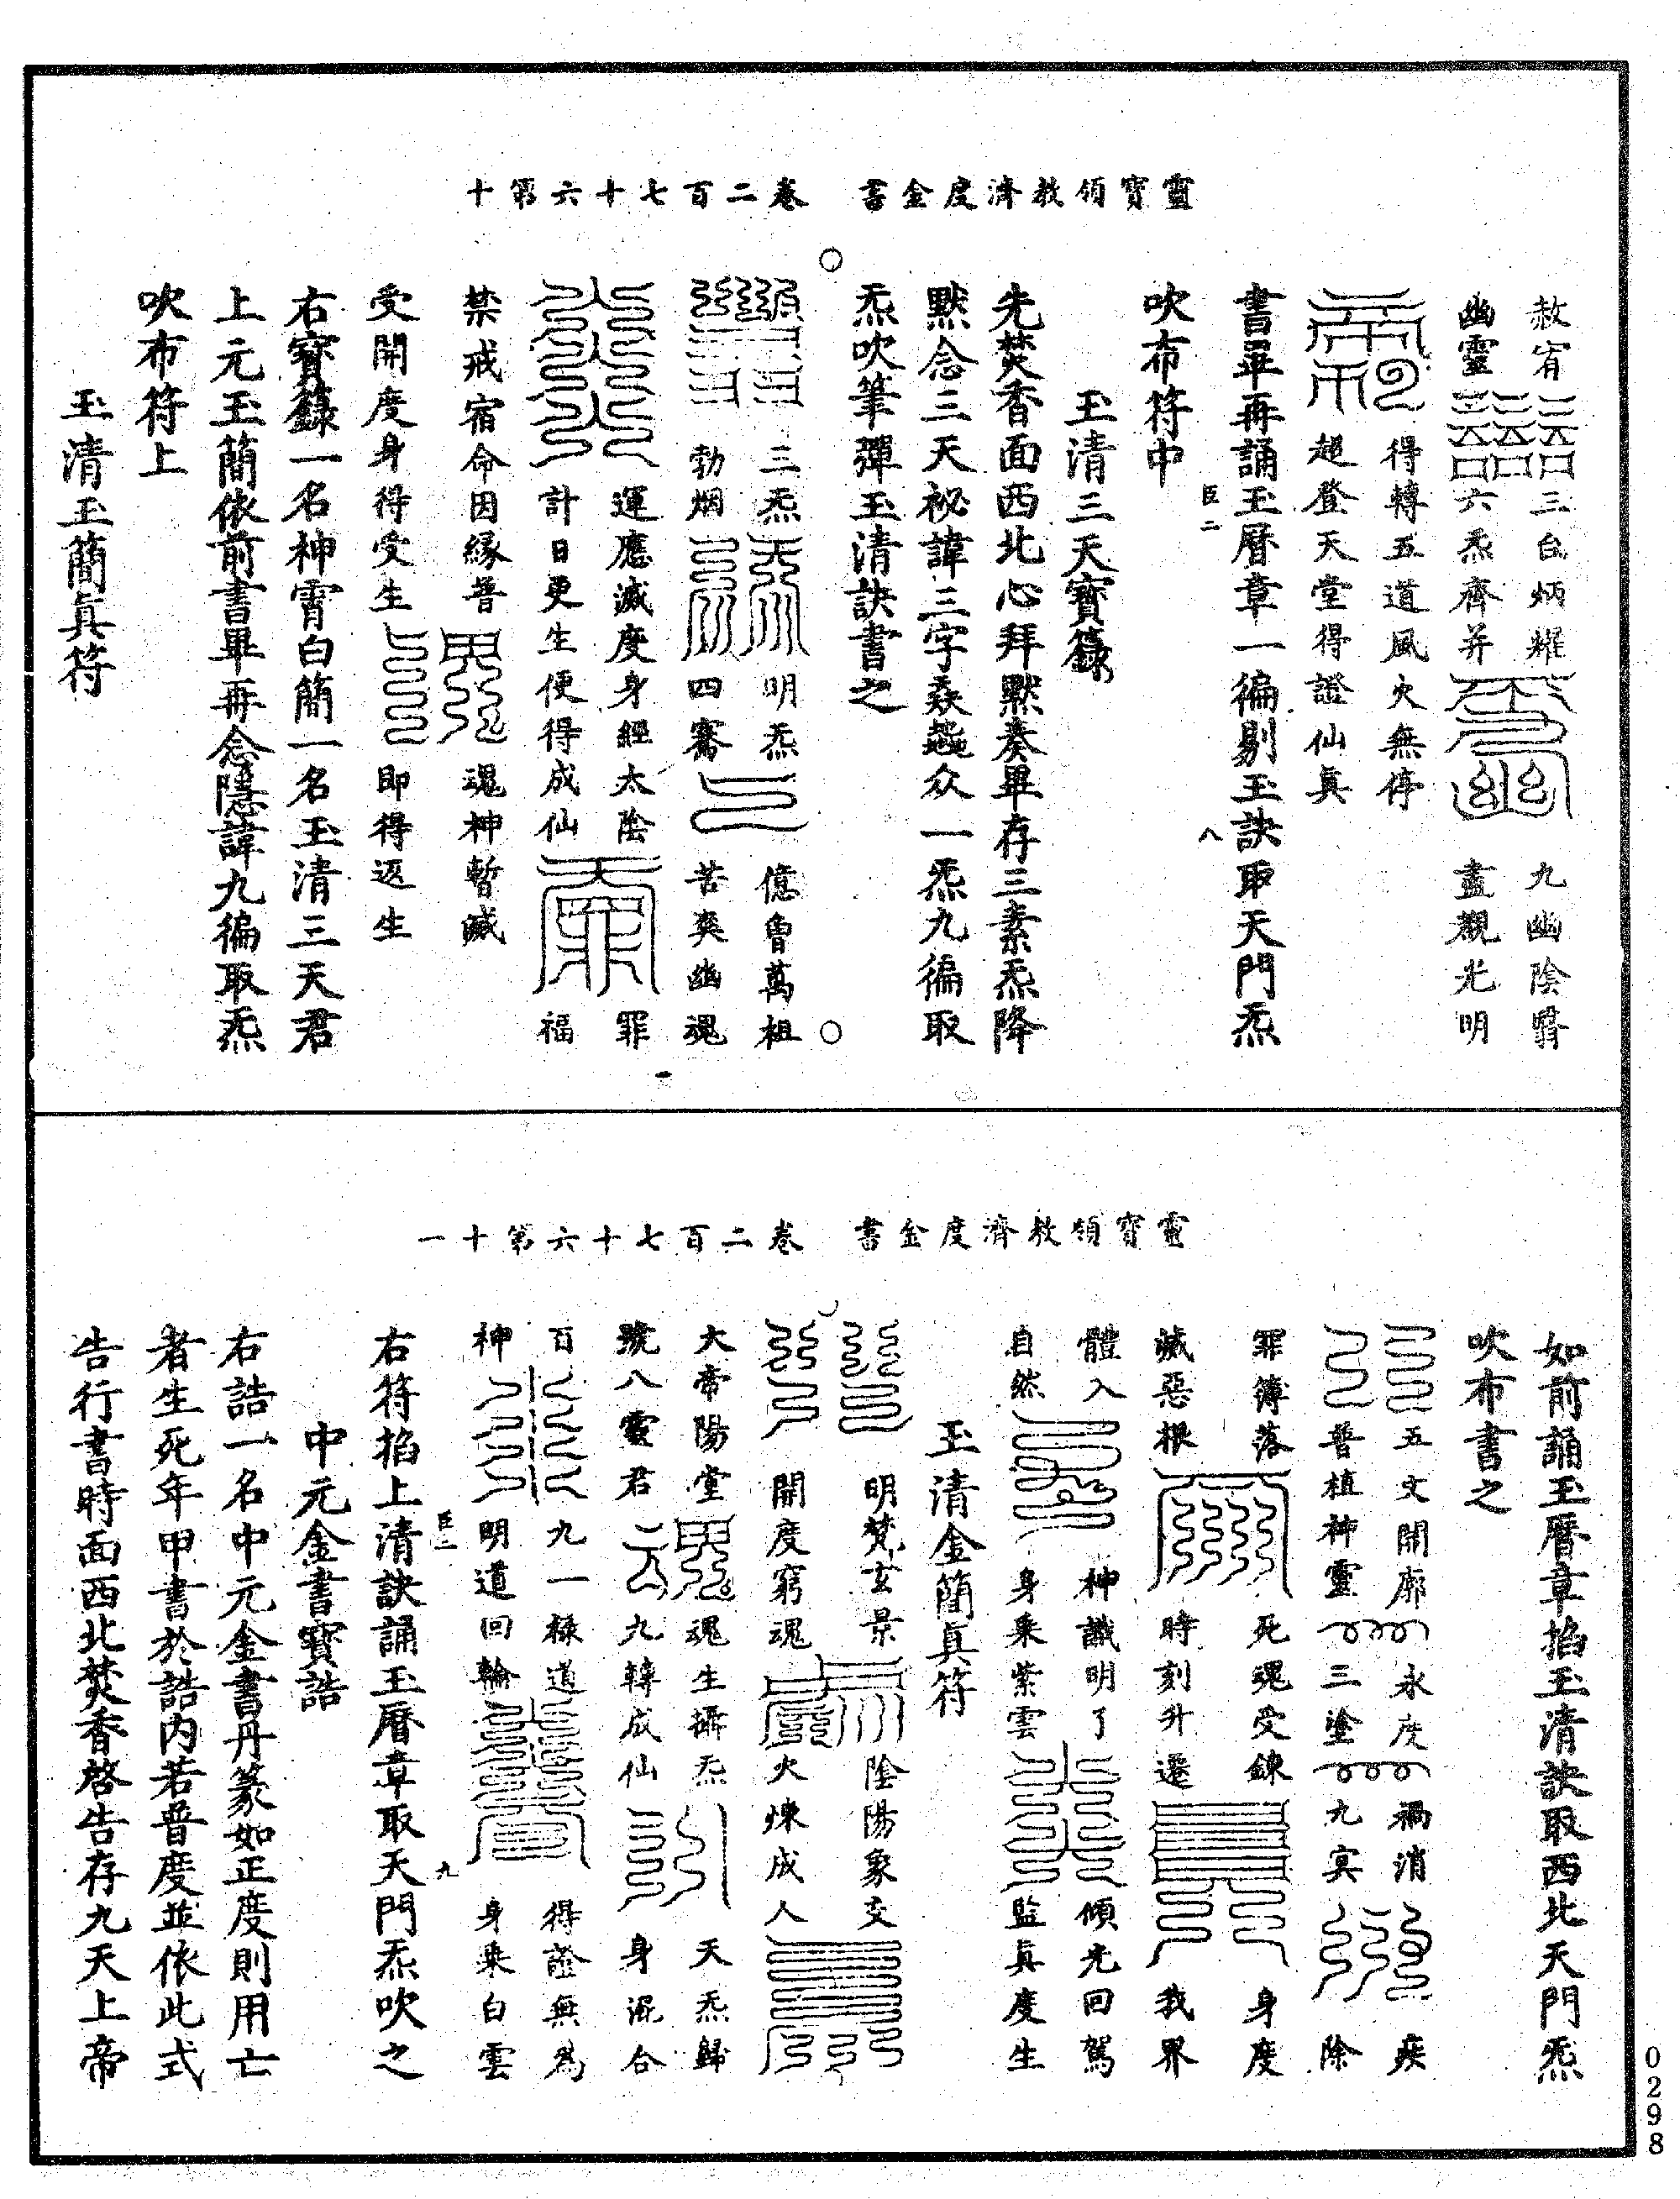 靈寶領教濟度金書 卷二百七十六第十
赦宥 三台炳耀 九幽陰翳
幽靈 六炁齊并 盡觀光明
得轉五道風火無停
超登天堂得證仙真
書畢再誦玉曆章一徧剔玉訣取天門炁
臣二 八
吹布符中
玉清三天寶籙
先焚香面西北心拜默奏畢存三素炁降
默念三天祕諱三字 众一炁九徧取
炁吹筆彈玉清訣書之
三炁 明炁 億曾萬祖
勃烟 四騫 苦爽幽魂
運應滅度身經太陰 罪
計日更生便得成仙 福
禁戒宿命因緣普 魂神暫滅
受開度身得受生 即得返生
右寶籙一名神霄白簡一名玉清三天君
上元玉簡依前書畢再念隱諱九徧取炁
吹布符上
玉清玉簡真符
靈寶領教濟度金書 卷二百七十六第十一
如前誦玉曆章掐玉清訣取西北天門炁
吹布書之
五文開廓 永度 禍消 疾
普植神靈 三塗 九冥 除
罪簿落 死魂受鍊 身度
滅惡根 時刻升遷 我界
體入 神識明了 傾光回駕
自然 身乘紫雲 監真度生
玉清金簡真符
明梵玄景 陰陽象交
開度窮魂 火煉成人
大帝陽堂 魂生攝炁 天炁歸
號八靈君 九轉成仙 身混合
百 九一 道 得證無為
神 明道回輪 身乘白雲
右符掐上清訣誦玉曆章取天門炁吹之
臣二 九
中元金書寶誥
右誥一名中元金書丹篆如正度則用亡
者生死年甲書於誥內若普度並依此式
告行書時面西北焚香啓告存九天上帝
0298